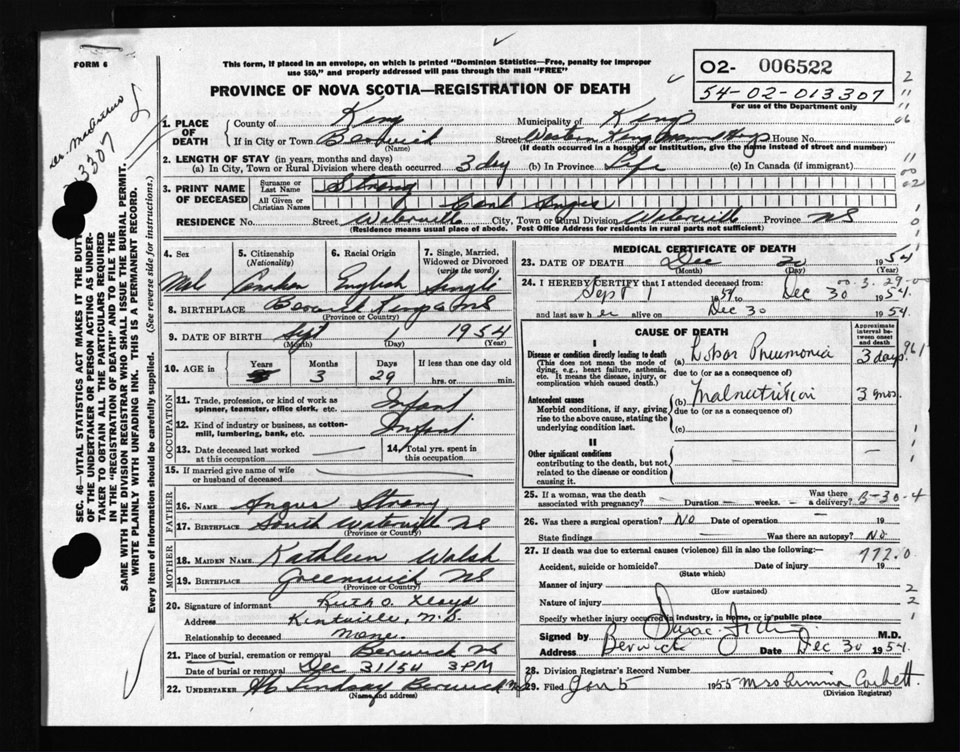 FORM 6
This form, if placed in an envelope, on which is printed "Dominion Statistics—Free, penalty for improper
use $50," and properly addressed will pass through the mail "FREE"
PROVINCE OF NOVA SCOTIA—REGISTRATION OF DEATH
02- 006522
54-02-013307
For use of the Department only
3307
SEC. 46—VITAL STATISTICS ACT MAKES IT THE DUTY
OF THE UNDERTAKER OR PERSON ACTING AS UNDER-
TAKER TO OBTAIN ALL THE PARTICULARS REQUIRED
IN THE "REGISTRATION OF DEATH" AND TO FILE THE
SAME WITH THE DIVISION REGISTRAR WHO SHALL ISSUE THE BURIAL PERMIT.
WRITE PLAINLY WITH UNFADING INK. THIS IS A PERMANENT RECORD.
Every item of information should be carefully supplied. (See reverse side for instructions.)
1. PLACE OF DEATH
County of Kings Municipality of Kings
If in City or Town Berwick Street Western Kings House No.
(Name) (If death occurred in a hospital or institution, give the name instead of street and number)
2. LENGTH OF STAY (in years, months and days)
(a) In City, Town or Rural Division where death occurred 3 day (b) In Province Life (c) In Canada (if immigrant)
3. PRINT NAME OF DECEASED
Surname or Last Name Strong
All Given or Christian Names Angus
RESIDENCE No. Street Waterville City, Town or Rural Division Waterville Province NS
(Residence means usual place of abode. Post Office Address for residents in rural parts not sufficient)
4. Sex Male
5. Citizenship (Nationality) Canadian
6. Racial Origin English
7. Single, Married, Widowed or Divorced (write the word) Single
8. BIRTHPLACE Berwick Kings NS
(Province or Country)
9. DATE OF BIRTH Sept 1 1954
(Month) (Day) (Year)
10. AGE in Years Months 3 Days 29 If less than one day old
hrs. or min.
OCCUPATION
11. Trade, profession, or kind of work as
spinner, teamster, office clerk, etc. Infant
12. Kind of industry or business, as cotton-
mill, lumbering, bank, etc. Infant
13. Date deceased last worked at this occupation
14. Total yrs. spent in this occupation
15. If married give name of wife
or husband of deceased
FATHER
16. NAME Angus Strong
17. BIRTHPLACE South Waterville NS
(Province or Country)
MOTHER
18. MAIDEN NAME Kathleen Walsh
19. BIRTHPLACE Greenwich NS
(Province or Country)
20. Signature of informant Ruth O. Lloyd
Address Kentville, N.S.
Relationship to deceased None.
21. Place of burial, cremation or removal Berwick NS
Date of burial or removal Dec 31/54 3PM
22. UNDERTAKER Lindsay Berwick NS
(Name and address)
MEDICAL CERTIFICATE OF DEATH
23. DATE OF DEATH Dec 1954
(Month) (Day) (Year)
24. I HEREBY CERTIFY that I attended deceased from:
Sept 1 1954 to Dec 30 1954.
and last saw her alive on Dec 30 1954.
CAUSE OF DEATH
Approximate interval between onset and death
I
Disease or condition directly leading to death
(This does not mean the mode of
dying, e.g., heart failure, asthenia,
etc. It means the disease, injury, or
complication which caused death.)
(a) Lobar Pneumonia 3 days
due to (or as a consequence of)
Antecedent causes
Morbid conditions, if any, giving
rise to the above cause, stating the
underlying condition last.
(b) Malnutrition 3 mos.
due to (or as a consequence of)
(c)
II
Other significant conditions
contributing to the death, but not
related to the disease or condition
causing it.
25. If a woman, was the death
associated with pregnancy? Duration weeks. Was there a delivery?
26. Was there a surgical operation? No Date of operation 19
State findings Was there an autopsy? No
27. If death was due to external causes (violence) fill in also the following:
Accident, suicide or homicide? Date of injury 19
(State which) 772.0
Manner of injury
(How sustained)
Nature of injury
Specify whether injury occurred in industry, home, or in public place
Signed by M.D.
Address Berwick Date Dec 30 1954.
28. Division Registrar's Record Number
29. Filed Jan 5 1955 Corbett.
(Division Registrar)